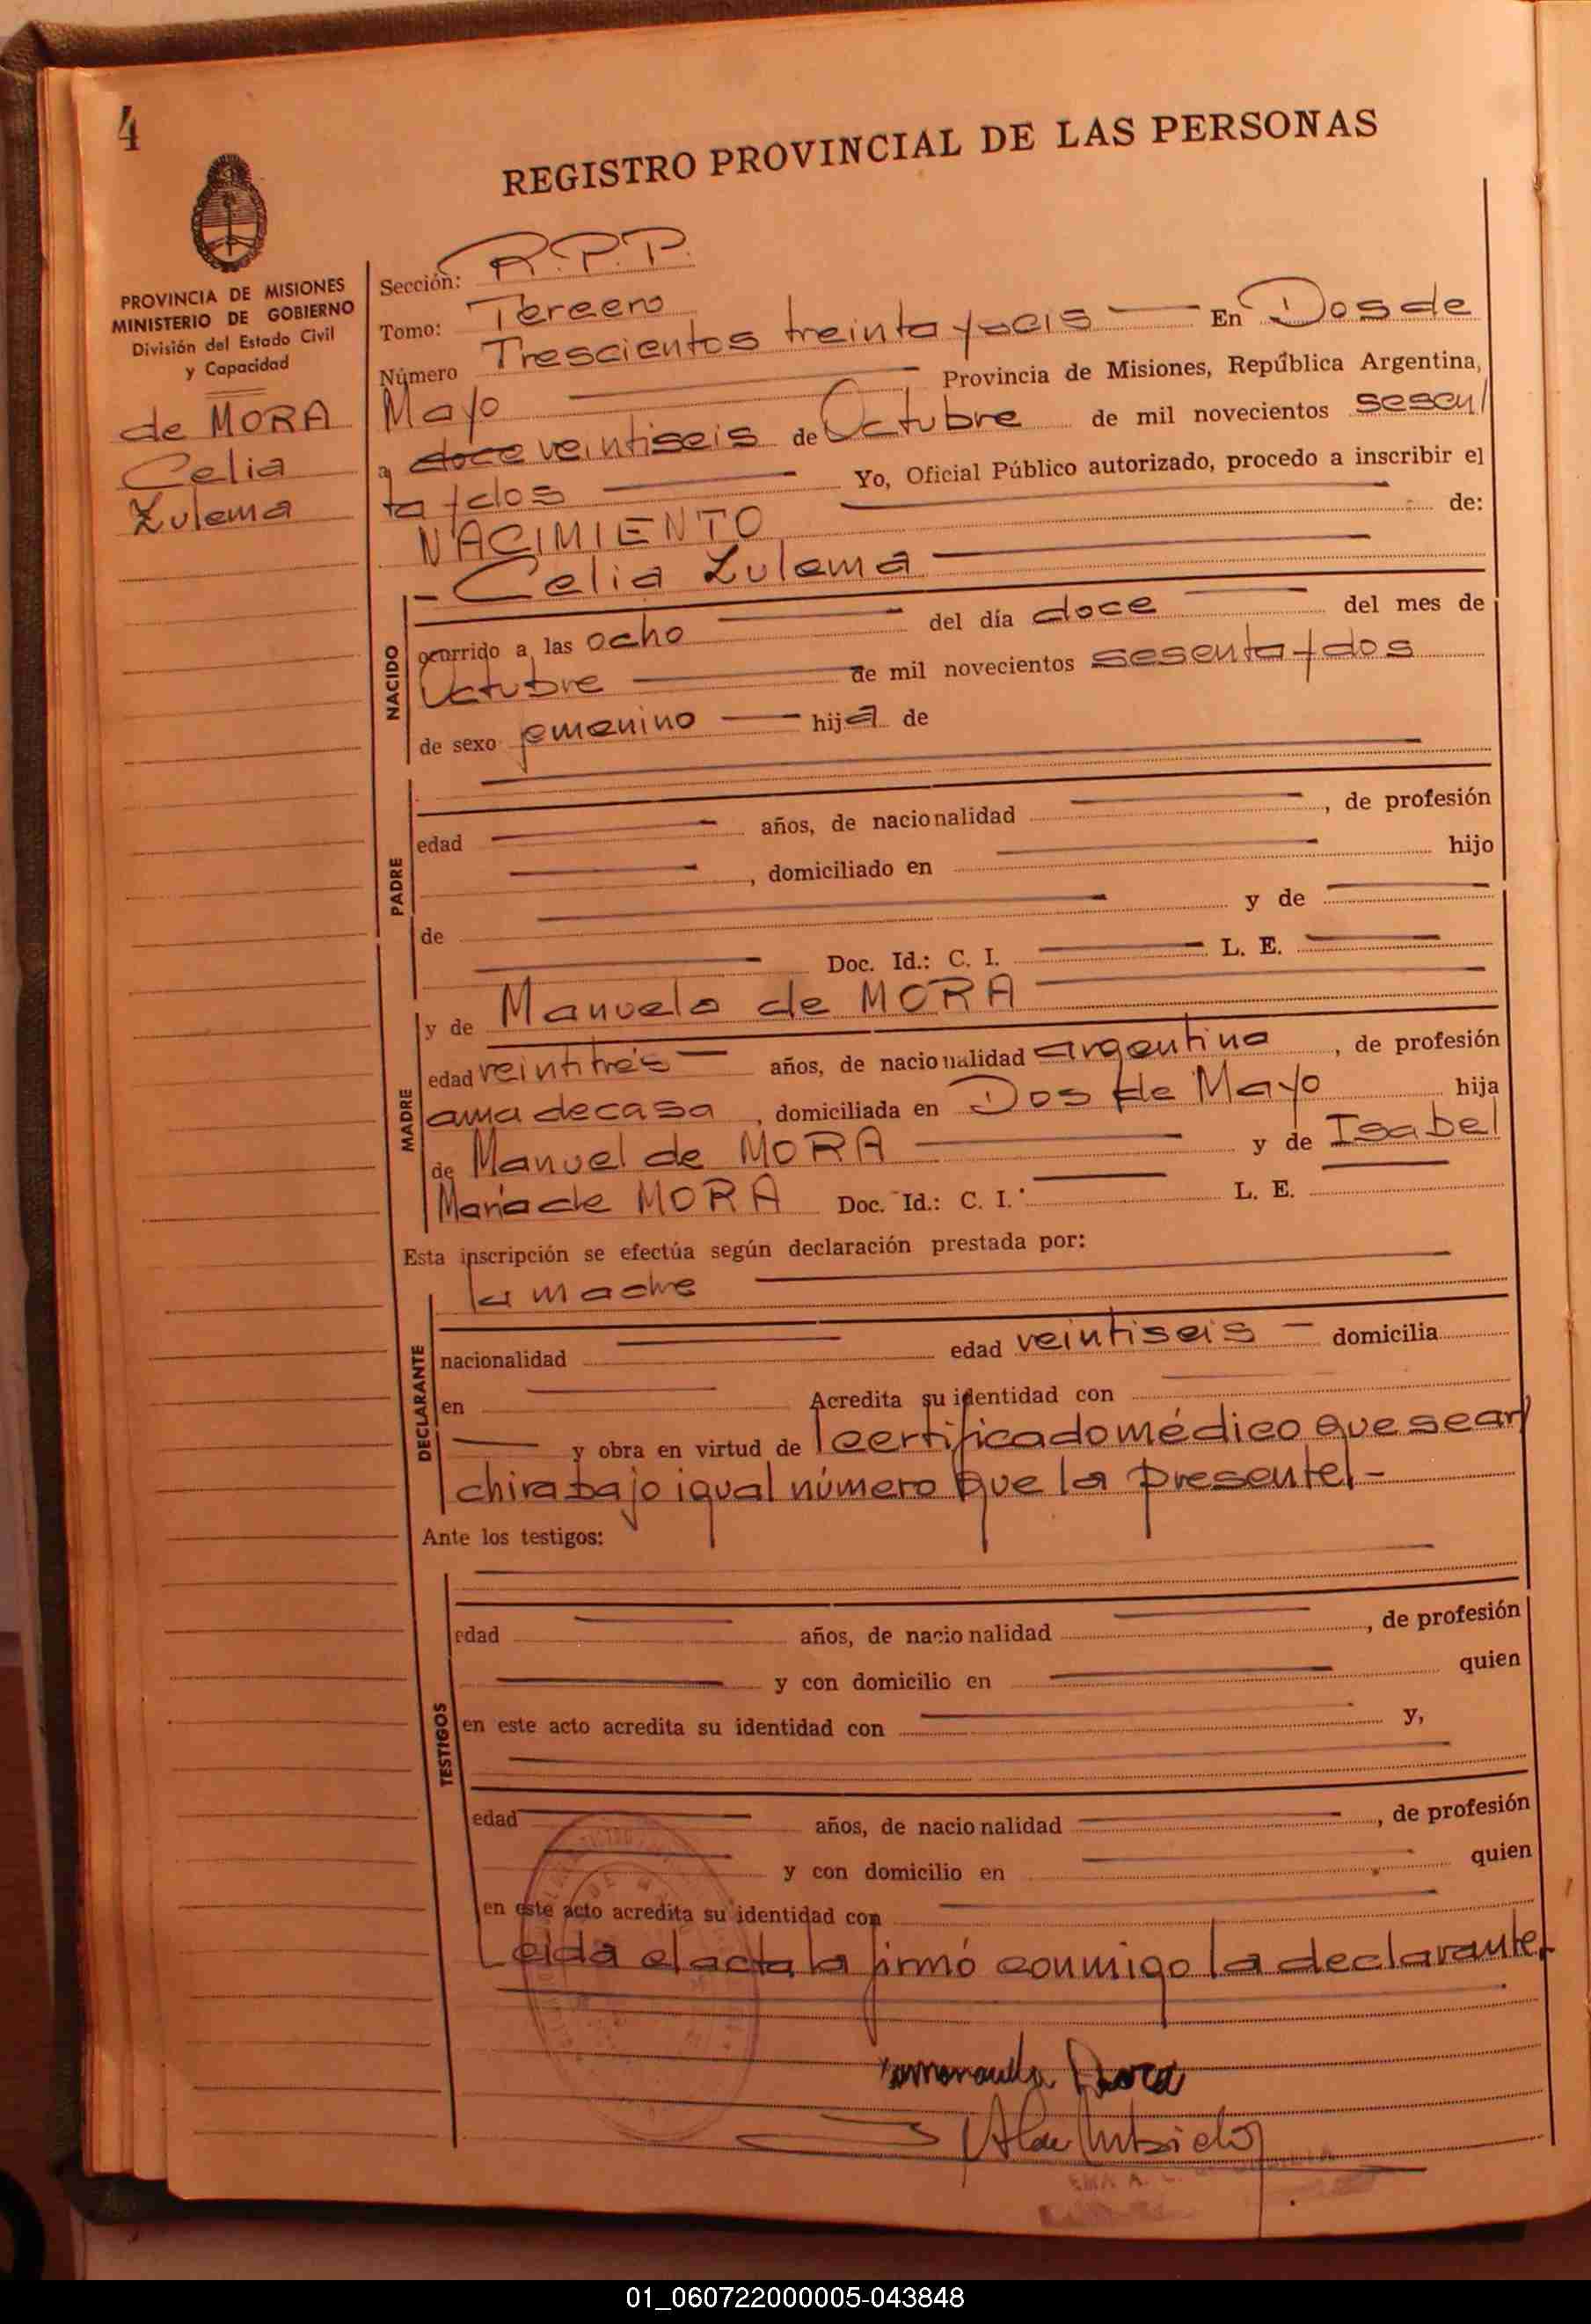 4
REGISTRO PROVINCIAL DE LAS PERSONAS
PROVINCIA DE MISIONES
MINISTERIO DE GOBIERNO
División del Estado Civil
y Capacidad
de MORA
Celia
Zulema
Sección: R.P.P.
Tomo: Tercero
Número Trescientos treinta y seis En Dos de
Mayo Provincia de Misiones, República Argentina,
a doce veintiseis de Octubre de mil novecientos sesen
ta y dos Yo, Oficial Público autorizado, procedo a inscribir el
NACIMIENTO de:
- Celia Zulema
NACIDO
ocurrido a las ocho del día doce del mes de
Octubre de mil novecientos sesenta y dos
de sexo femenino hija de
PADRE
edad años, de nacionalidad , de profesión
, domiciliado en hijo
de y de
Doc. Id.: C. I. L. E.
MADRE
y de Manuela de MORA
edad veintitrés años, de nacionalidad argentina , de profesión
ama de casa , domiciliada en Dos de Mayo hija
de Manuel de MORA y de Isabel
María de MORA Doc. Id.: C. I. L. E.
Esta inscripción se efectúa según declaración prestada por:
la madre
DECLARANTE
nacionalidad edad veintiseis domicilia
en Acredita su identidad con
y obra en virtud de certificado médico que se ar
chiva bajo igual número que la presente.-
Ante los testigos:
TESTIGOS
edad años, de nacionalidad , de profesión
y con domicilio en quien
en este acto acredita su identidad con y,
edad años, de nacionalidad , de profesión
y con domicilio en quien
en este acto acredita su identidad con
Leída el acta la firmó conmigo la declarante.
Mora
01_060722000005-043848